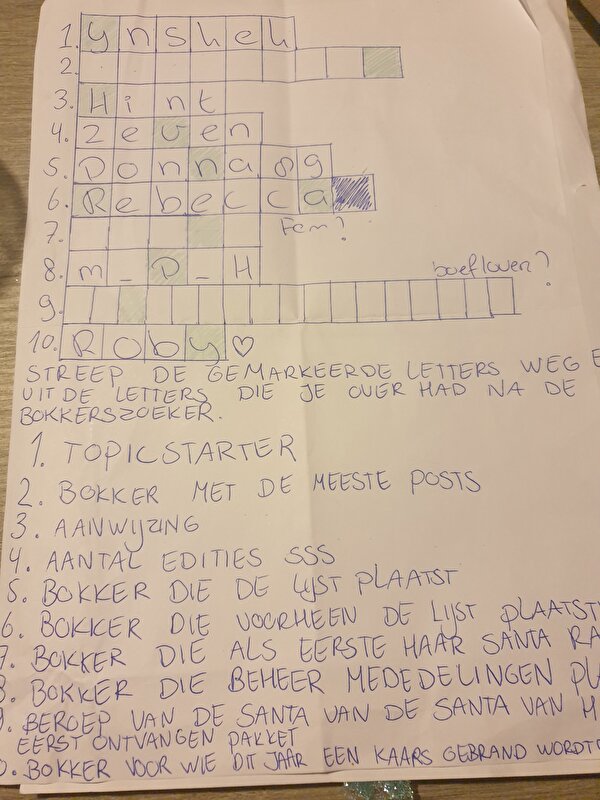 1. ynsheh
2.
3. Hint
4. zeven
5. Donna89
6. Rebecca
7. Fem?
8. m_D_H
boefloven?
9.
10. Roby ♡
STREEP DE GEMARKEERDE LETTERS WEG
UIT DE LETTERS DIE JE OVER HAD NA DE
BOKKERSZOEKER.
1. TOPICSTARTER
2. BOKKER MET DE MEESTE POSTS
3. AANWIJZING
4. AANTAL EDITIES SSS
5. BOKKER DIE DE LIJST PLAATST
6. BOKKER DIE VOORHEEN DE LIJST PLAATST
7. BOKKER DIE ALS EERSTE HAAR SANTA RA
8. BOKKER DIE BEHEER MEDEDELINGEN PL
9. BEROEP VAN DE SANTA VAN DE SANTA VAN
EERST ONTVANGEN PAKKET
0. BOKKER VOOR WIE DIT JAAR EEN KAARS GEBRAND WORDT